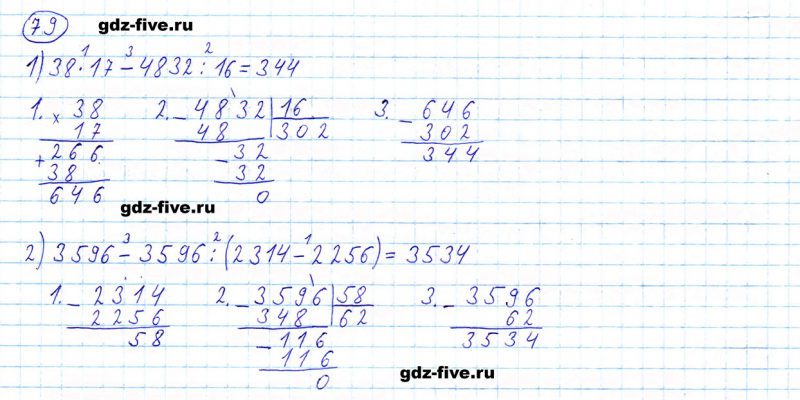 79 gdz-five.ru
1) 38·17 - 4832 : 16 = 344
1 3 2
1. × 38
17
+ 266
38
646
2. - 4832 | 16
48 302
- 32
32
0
3. - 646
302
344
gdz-five.ru
2) 3596 - 3596 : (2314 - 2256) = 3534
3 2 1
1. - 2314
2256
58
2. - 3596 | 58
348 62
- 116
116
0
3. - 3596
62
3534
gdz-five.ru